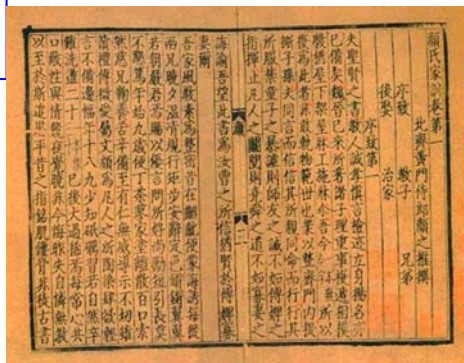 顏氏家訓卷第一
北齊黃門侍郎顏之推撰
序致 教子 兄弟
後娶 治家
序致第一
夫聖賢之書教人誠孝慎言檢迹立身揚名亦
已備矣魏晉已來所著諸子理重事複遞相模
猶屋下架屋牀上施牀耳吾今所以
復為此者非敢軌物範世也業以整齊門內提
撕子孫夫同言而信信其所親同命而行行其
所服禁童子之暴謔則師友之誡不如傅婢之
指揮止凡人之鬬鬩則堯舜之道不如寡妻之
誨諭吾望此書為汝曹之所信猶賢於傅婢寡
妻爾
吾家風教素為整密昔在齠齔便蒙誨誘每從
兩兄曉夕溫凊規行矩步安辭定色鏘鏘翼翼
若朝嚴君焉賜以優言問所好尚勵短引長莫
不懇篤年始九歲便丁荼蓼家塗離散百口索
然慈兄鞠養苦辛備至有仁無威導示不切雖
讀禮傳微愛屬文頗為凡人之所陶染肆欲輕
言不備邊幅年十八九少知砥礪習若自然卒
難洗盪二十已後大過稀焉每常心共
口敵性與情競夜覺曉非今悔昨失自憐無教
以至於斯追思平昔之指銘肌鏤骨非徒古書